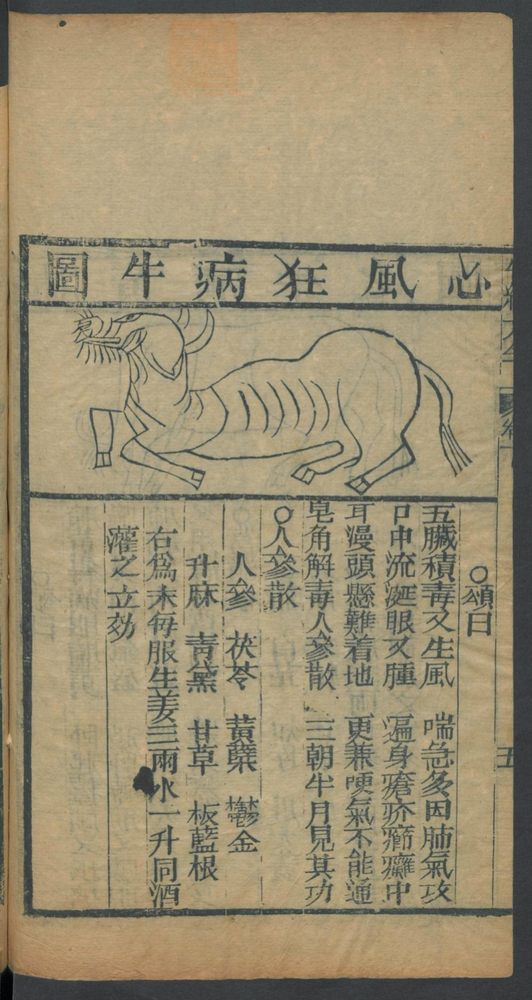 心風狂病牛圖
○頌曰
五臟積毒又生風 喘急多因肺氣攻
口中流涎眼又腫 遍身瘡疥癤癰中
耳漫頭懸難着地 更兼哽氣不能通
皂角解毒人參散 三朝半月見其功
○人參散
人參 茯苓 黃蘗 鬱金
升麻 青黛 甘草 板藍根
右爲末每服生姜三兩水一升同酒
灌之立効
五